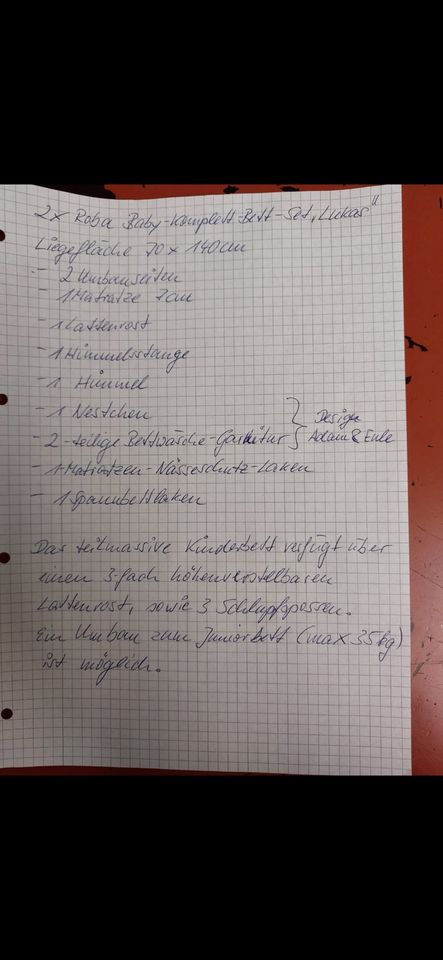 2x Roba Baby-Komplett Bett-Set „Lukas"
Liegefläche 70 x 140cm
- 2 Umbauseiten
- 1 Matratze 7cm
- 1 Lattenrost
- 1 Himmelsstange
- 1 Himmel
- 1 Nestchen
- 2-teilige Bettwäsche-Garnitur } Design Adam & Eule
- 1 Matratzen-Nässeschutz-Laken
- 1 Spannbettlaken
Das teilmassive Kinderbett verfügt über
einen 3-fach höhenverstelbaren
Lattenrost, sowie 3 Schlupfsprossen.
Ein Umbau zum Juniorbett (max 35kg)
ist möglich.